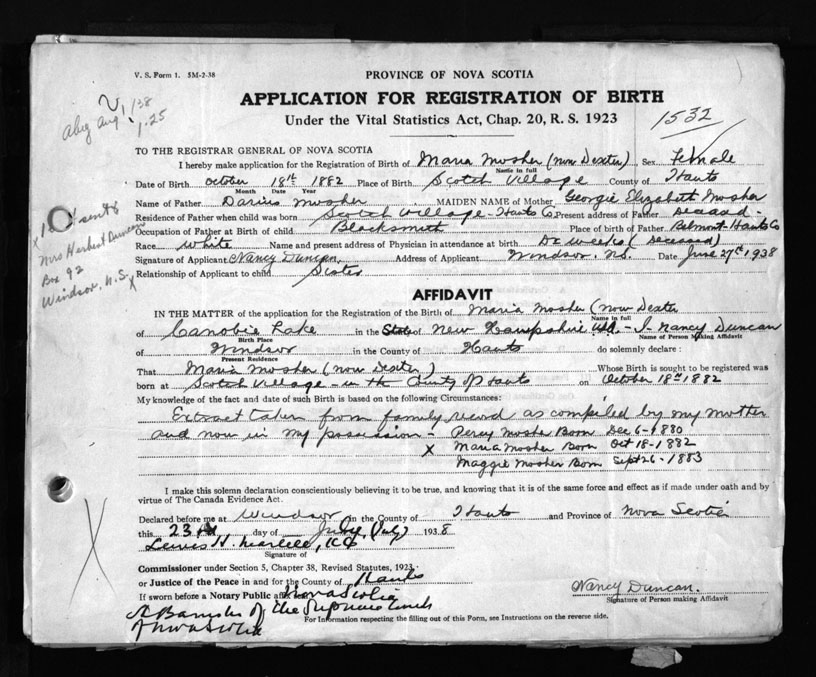 V. S. Form 1. 5M-2-38
PROVINCE OF NOVA SCOTIA
APPLICATION FOR REGISTRATION OF BIRTH
Under the Vital Statistics Act, Chap. 20, R. S. 1923
1532
Aug 1/38
1.25
TO THE REGISTRAR GENERAL OF NOVA SCOTIA
I hereby make application for the Registration of Birth of Maria Mosher (now Dexter) Sex Female
Name in full
Date of Birth October 18th 1882 Place of Birth Scotch Village County of Hants
Month Date Year
Name of Father Darius Mosher MAIDEN NAME of Mother Georgie Elizabeth Mosher
Residence of Father when child was born Scotch Village - Hants Co. Present address of Father Deceased -
Occupation of Father at Birth of child Blacksmith Place of birth of Father Belmont - Hants Co
Race White Name and present address of Physician in attendance at birth Dr Weeks (Deceased)
Signature of Applicant Nancy Duncan. Address of Applicant Windsor. N.S. Date June 27th 1938
Relationship of Applicant to child Sister
X sent
Mrs Herbert Duncan
Box 92
Windsor, N.S. X
AFFIDAVIT
IN THE MATTER of the application for the Registration of the Birth of Maria Mosher (now Dexter
Name in full
of Canobie Lake in the State of New Hampshire - I - Nancy Duncan
Birth Place Name of Person Making Affidavit
of Windsor in the County of Hants do solemnly declare :
Present Residence
That Maria Mosher (now Dexter) Whose Birth is sought to be registered was
born at Scotch Village - in the County of Hants on October 18th 1882
My knowledge of the fact and date of such Birth is based on the following Circumstances:
Extract taken from family record as compiled by my mother
and now in my possession - Percy Mosher Born Dec 6 - 1880
X Maria Mosher Born Oct 18 - 1882
Maggie Mosher Born Sept 26 - 1883
I make this solemn declaration conscientiously believing it to be true, and knowing that it is of the same force and effect as if made under oath and by
virtue of The Canada Evidence Act.
Declared before me at Windsor in the County of Hants and Province of Nova Scotia
this 23rd day of July (July) 1938
Lewis H. KC
Signature of
Commissioner under Section 5, Chapter 38, Revised Statutes, 1923,
or Justice of the Peace in and for the County of Hants
If sworn before a Notary Public Nova Scotia
A Barrister of the Supreme Court
of Nova Scotia
Nancy Duncan.
Signature of Person making Affidavit
For Information respecting the filling out of this Form, see Instructions on the reverse side.
X